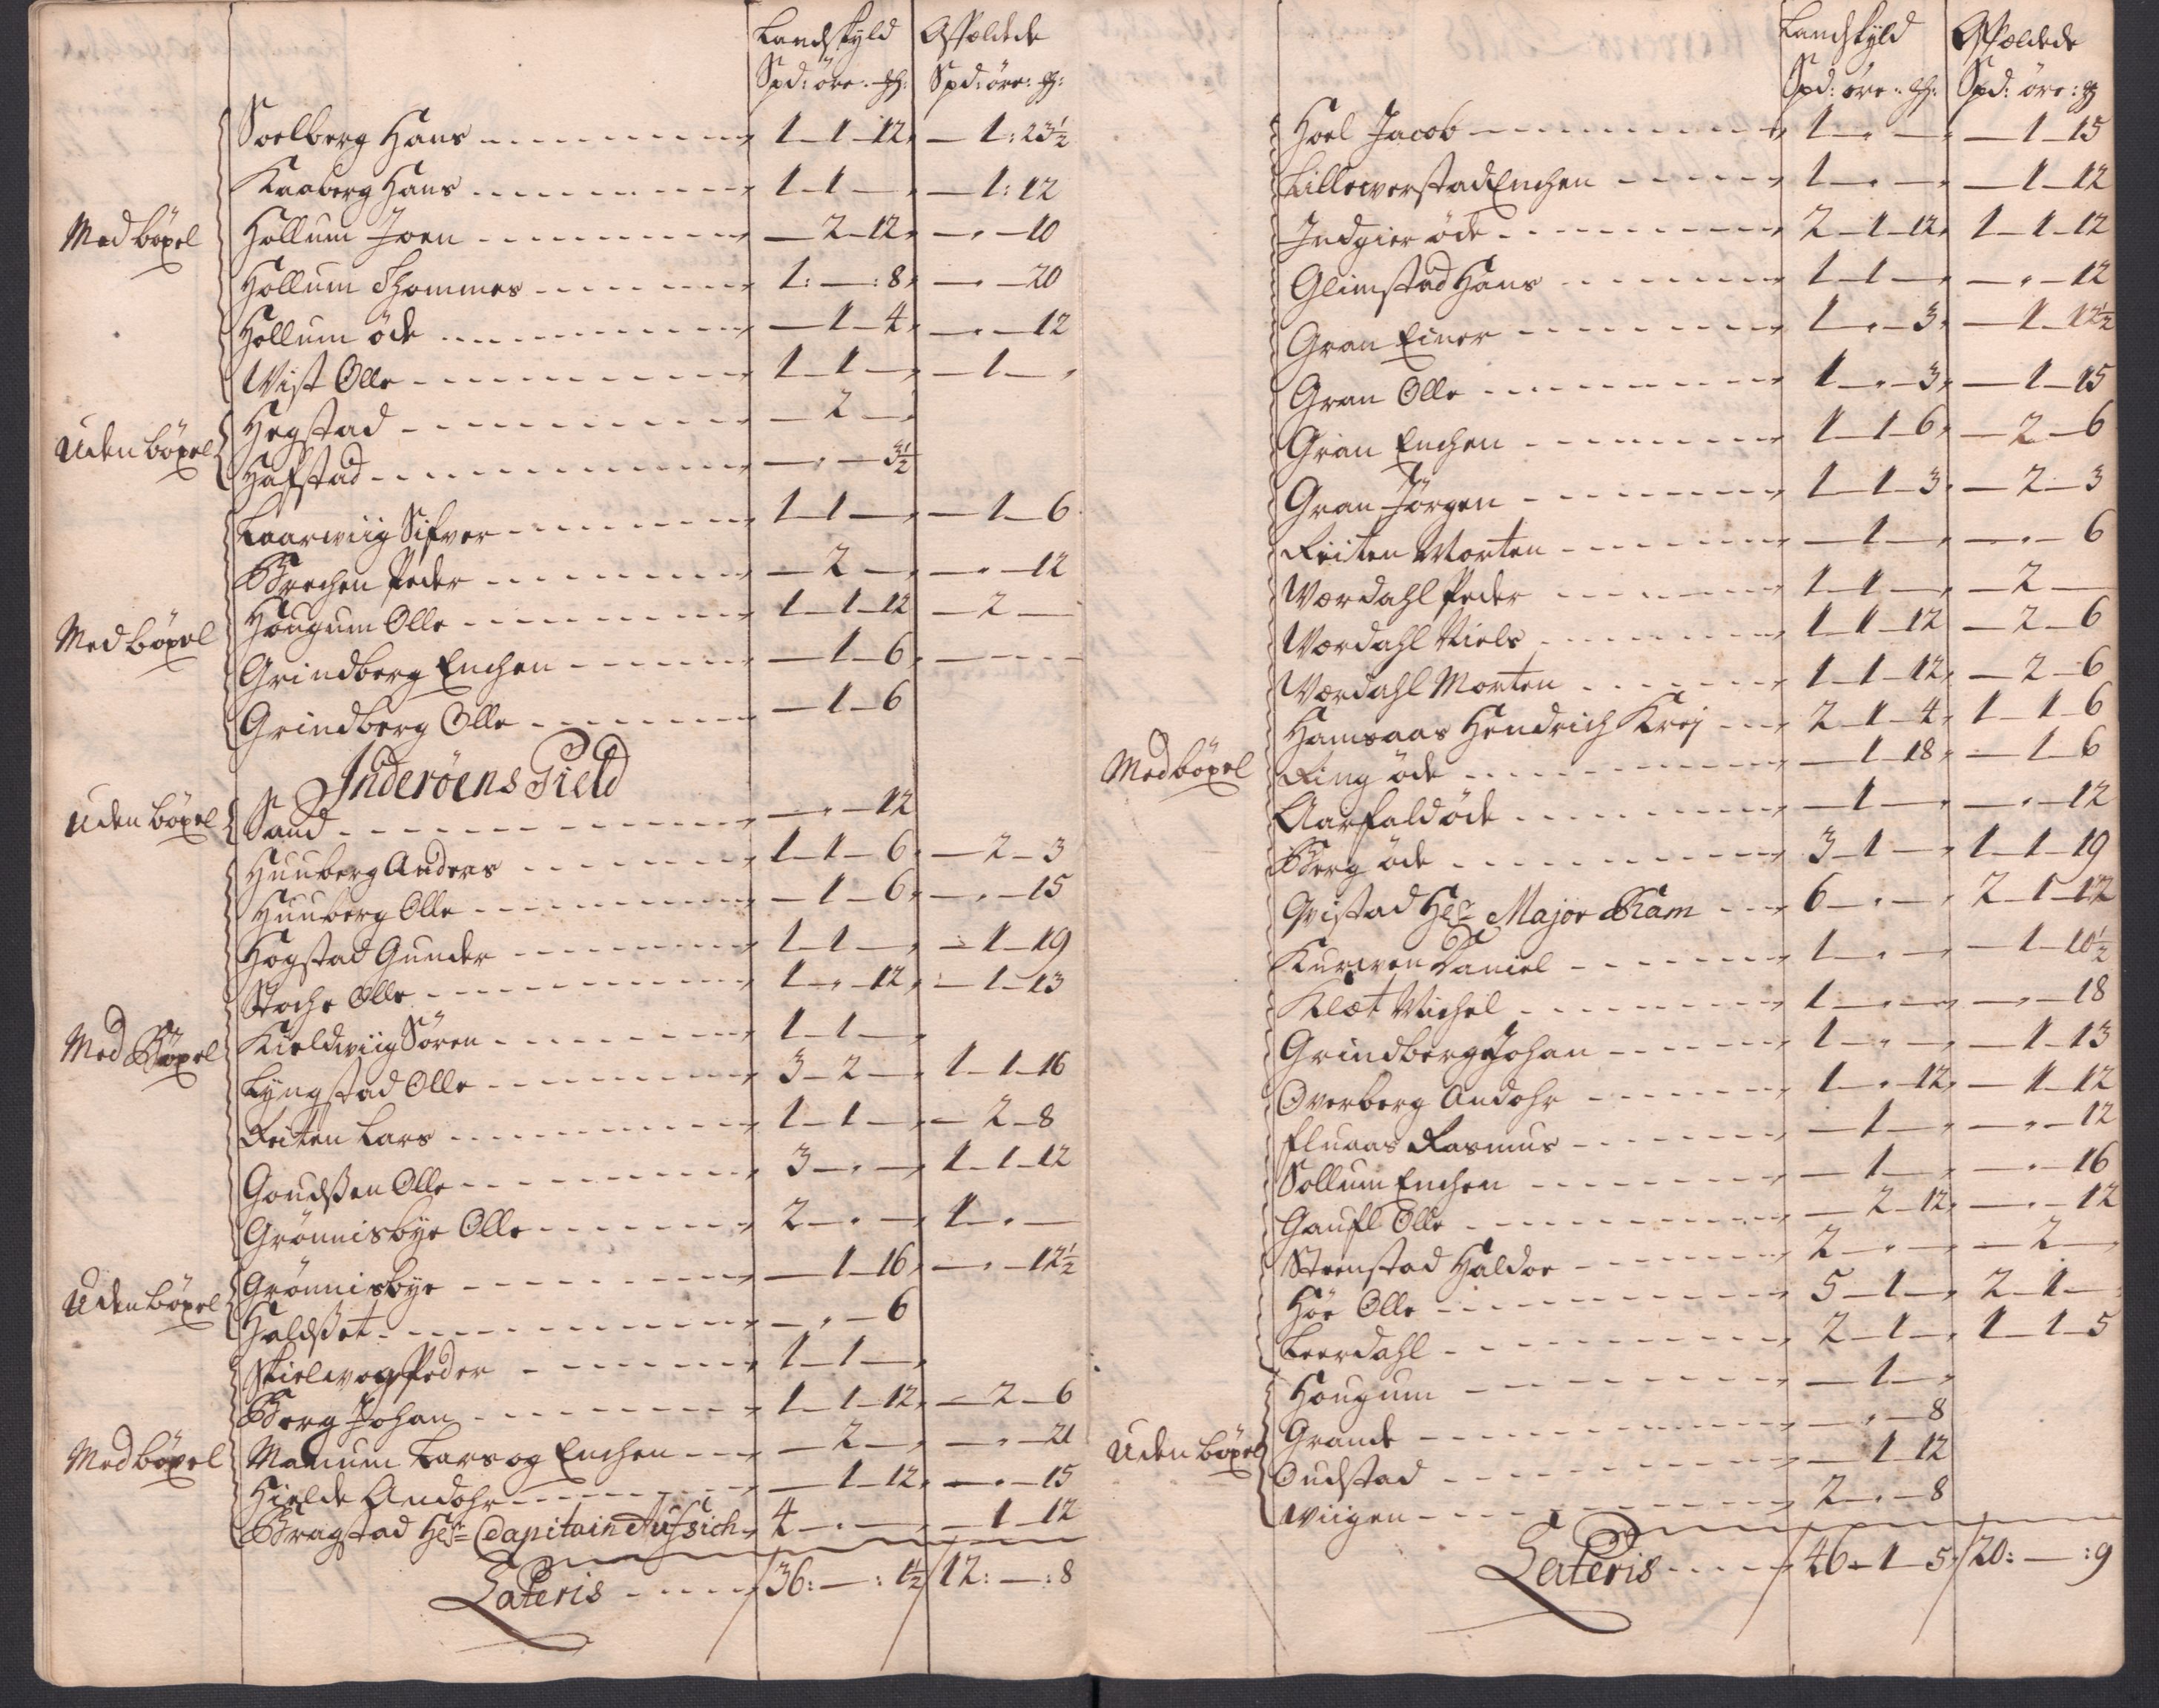 Landskÿld Affældede
Spd: öre: ₰: Spd: öre: ₰:
Soelberg Hans 1 – 1 – 12 — 1 : 23½
Kaaberg Hans 1 – 1 — — 1 : 12
Med böxel Hollum Joen — 2 – 12 — „ — 10
Hollum Thommes 1 : — : 8 — „ — 20
Hollum öde — 1 – 4 — „ — 12
Wist Olle 1 – 1 — — 1 —
Hegstad — 2 —
Uden böxel
Hafstad — „ — 3½
Laarwiig Sifver 1 – 1 — — 1 – 6
Brechen Peder — 2 — — „ — 12
Med böxel Hougum Olle 1 – 1 – 12 — 2 —
Grindberg Enchen — 1 – 6
Grindberg Olle — 1 – 6
Inderöens Gield
Uden böxel Sand — „ — 12
Huuberg Anders 1 – 1 – 6 — 2 – 3
Huuberg Olle — 1 – 6 — „ — 15
Hogstad Gunder 1 – 1 — — 1 – 19
Stoche Olle 1 – „ – 12 — 1 – 13
Med Böxel Kieldwiig Sören 1 – 1 —
Lÿngstad Olle 3 – 2 — 1 – 1 – 16
Reiten Lars 1 – 1 — — 2 – 8
Goudßen Olle 3 — „ — 1 – 1 – 12
Grönnisbÿe Olle 2 — „ — 1 — „ —
Grönnisbÿe — 1 – 16 — „ — 12½
Uden böxel
Haldßet — „ — 6
Skielwog Peder 1 – 1 —
Borg Johan 1 – 1 – 12 — 2 – 6
Med böxel Mannum Lars og Enchen — 2 — — „ — 21
Hielde Andohr — 1 – 12 — „ — 15
Bragstad Hr Capitain Aufsich 4 — „ — — 1 – 12
Lateris 36 : — : 1½ 12 : — : 8
Landskÿld Affældede
Spd: öre: ₰: Spd: öre: ₰
Hoel Jacob 1 — „ — — 1 – 15
Lillewerstad Enchen 1 — „ — — 1 – 12
Indgier öde 2 – 1 – 12 1 – 1 – 12
Glimstad Hans 1 – 1 — — „ — 12
Gran Einer 1 — „ — 3 — 1 – 12½
Gran Olle 1 — „ — 3 — 1 – 15
Gran Enchen 1 – 1 – 6 — 2 – 6
Gran Jörgen 1 – 1 – 3 — 2 – 3
Reiten Morten — 1 — — „ — 6
Wærdahl Peder 1 – 1 — — 2 —
Wærdahl Niels 1 – 1 – 12 — 2 – 6
Wærdahl Morten 1 – 1 – 12 — 2 – 6
Hamsaas Hendrich Kreÿ 2 – 1 – 4 1 – 1 – 6
Med böxel Ring öde — 1 – 18 — 1 – 6
Aarfald öde — 1 — — „ — 12
Berg öde 3 – 1 — 1 – 1 – 19
Qvistad Hr Major Kam 6 — „ — 2 – 1 – 12
Kurwen Daniel 1 — „ — — 1 – 10½
Klæt Michel 1 — „ — — „ — 18
Grindberg Johan 1 — „ — — 1 – 13
Overberg Andohr 1 — „ — 12 — 1 – 12
Fluaas Rasmus — 1 — — „ — 12
Sollum Enchen — 1 — — „ — 16
Gaufl Olle — 2 – 12 — „ — 12
Steenstad Haldor 2 — „ — — 2 —
Höe Olle 5 – 1 — 2 – 1 —
Leerdahl 2 – 1 — 1 – 1 – 5
Hougum — 1 —
Grande — „ — 8
Uden böxel
Oudstad — 1 – 12
Wiigen 2 — „ — 8
Lateris 46 – 1 – 5 20 : — : 9